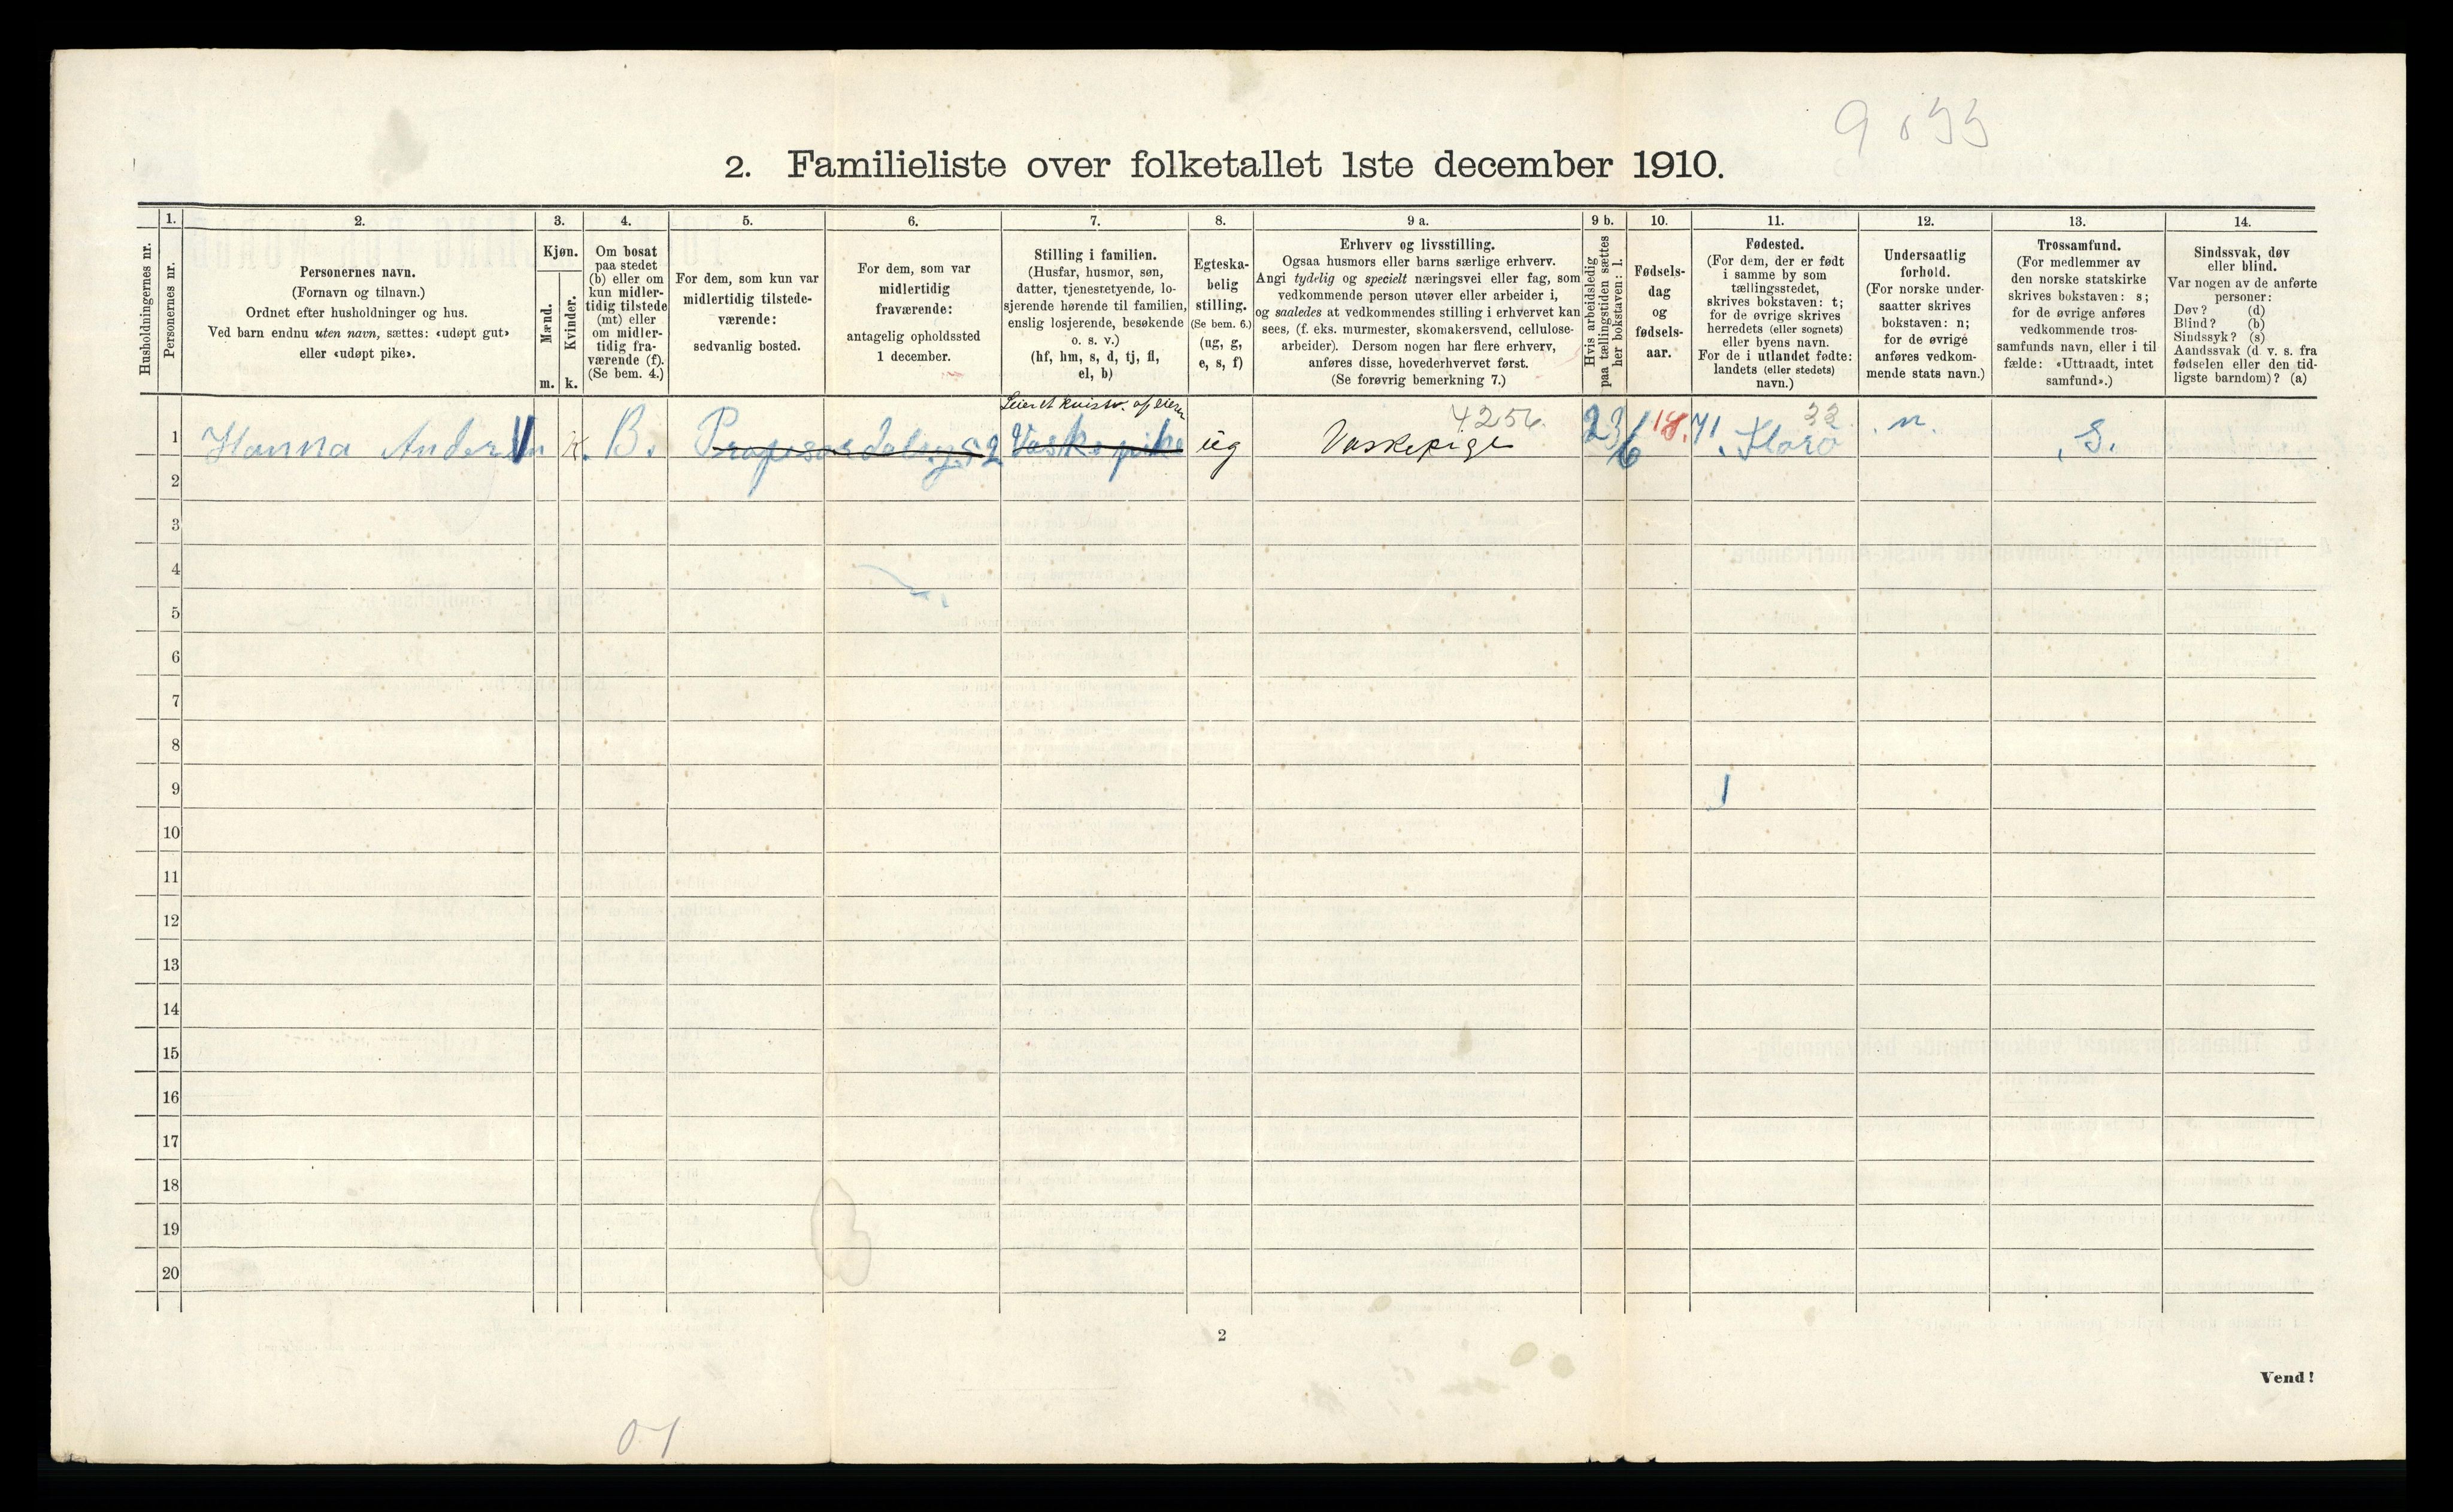 2. Familieliste over folketallet 1ste december 1910.
Husholdningernes nr.
1.
Personernes nr.
2.
Personernes navn.
(Fornavn og tilnavn.)
Ordnet efter husholdninger og hus.
Ved barn endnu uten navn, sættes: «udøpt gut»
eller «udøpt pike».
3.
Kjøn.
Mænd.
Kvinder.
m. k.
4.
Om bosat
paa stedet
(b) eller om
kun midler-
tidig tilstede
(mt) eller
om midler-
tidig fra-
værende (f).
(Se bem. 4.)
5.
For dem, som kun var
midlertidig tilstede-
værende:
sedvanlig bosted.
6.
For dem, som var
midlertidig
fraværende:
antagelig opholdssted
1 december.
7.
Stilling i familien.
(Husfar, husmor, søn,
datter, tjenestetyende, lo-
sjerende hørende til familien,
enslig losjerende, besøkende
o. s. v.)
(hf, hm, s, d, tj, fl,
el, b)
8.
Egteska-
belig
stilling.
(Se bem. 6.)
(ug, g,
e, s, f)
9 a.
Erhverv og livsstilling.
Ogsaa husmors eller barns særlige erhverv.
Angi tydelig og specielt næringsvei eller fag, som
vedkommende person utøver eller arbeider i,
og saaledes at vedkommendes stilling i erhvervet kan
sees, (f. eks. murmester, skomakersvend, cellulose-
arbeider). Dersom nogen har flere erhverv,
anføres disse, hovederhvervet først.
(Se forøvrig bemerkning 7.)
9 b.
Hvis arbeidsledig
paa tællingstiden sættes
her bokstaven: l.
10.
Fødsels-
dag
og
fødsels-
aar.
11.
Fødested.
(For dem, der er født
i samme by som
tællingsstedet,
skrives bokstaven: t;
for de øvrige skrives
herredets (eller sognets)
eller byens navn.
For de i utlandet fødte:
landets (eller stedets)
navn.)
12.
Undersaatlig
forhold.
(For norske under-
saatter skrives
bokstaven: n;
for de øvrige
anføres vedkom-
mende stats navn.)
13.
Trossamfund.
(For medlemmer av
den norske statskirke
skrives bokstaven: s;
for de øvrige anføres
vedkommende tros-
samfunds navn, eller i til
fælde: «Uttraadt, intet
samfund».)
14.
Sindssvak, døv
eller blind.
Var nogen av de anførte
personer:
Døv? (d)
Blind? (b)
Sindssyk? (s)
Aandssvak (d. v. s. fra
fødselen eller den tid-
ligste barndom)? (a)
4256. 22
1 Hanna K. B. Vaskepike ug Vaskepige 23/6 18.71 Florø n. S.
2
3
4
5
6
7
8
9
10
11
12
13
14
15
16
17
18
19
20
2
Vend!